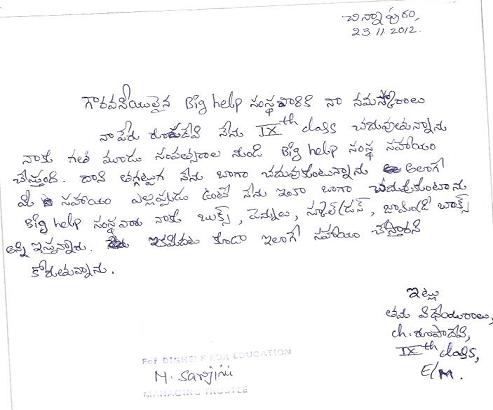 చిన్నాపురం,
23.11.2012.
గౌరవనీయులైన Big help సంస్థ వారికి నా నమస్కారాలు
నా పేరు రూపాదేవి నేను IXth class చదువుతున్నాను
నాకు గత మూడు సంవత్సరాల నుండి Big help సంస్థ సహాయం
చేస్తుంది. దాని తగ్గట్టుగ నేను బాగా చదువుకుంటున్నాను అలాగే
మీ సహాయం ఎల్లప్పుడు ఉంటే నేను ఇంకా బాగా చదువుకుంటాను
Big help సంస్థ వారు నాకు బుక్స్, పెన్నులు, స్కూల్ డ్రస్, జామెంట్రీ బాక్స్
అన్ని ఇస్తున్నారు. ఇకమీదట కూడా ఇలాగే సహాయం చేస్తారని
కోరుతున్నాను.
ఇట్లు
తమ విధేయురాలు,
ch. రూపాదేవి,
IXth class,
E/M.
For BIGHELP FOR EDUCATION
M. Sarojini
MANAGING TRUSTEE